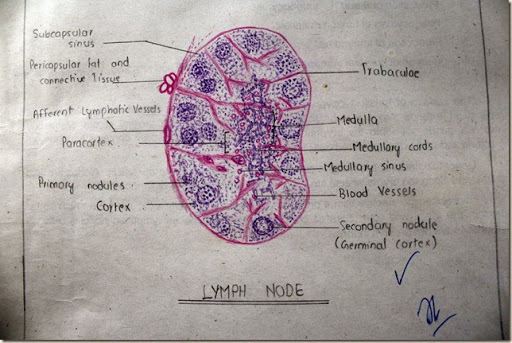 Subcapsular
sinus
Pericapsular fat and
connective tissue
Afferent Lymphatic Vessels
Paracortex
Primary nodules
Cortex
Trabaculae
Medulla
Medullary cords
Medullary sinus
Blood Vessels
Secondary nodule
(Germinal cortex)
LYMPH NODE